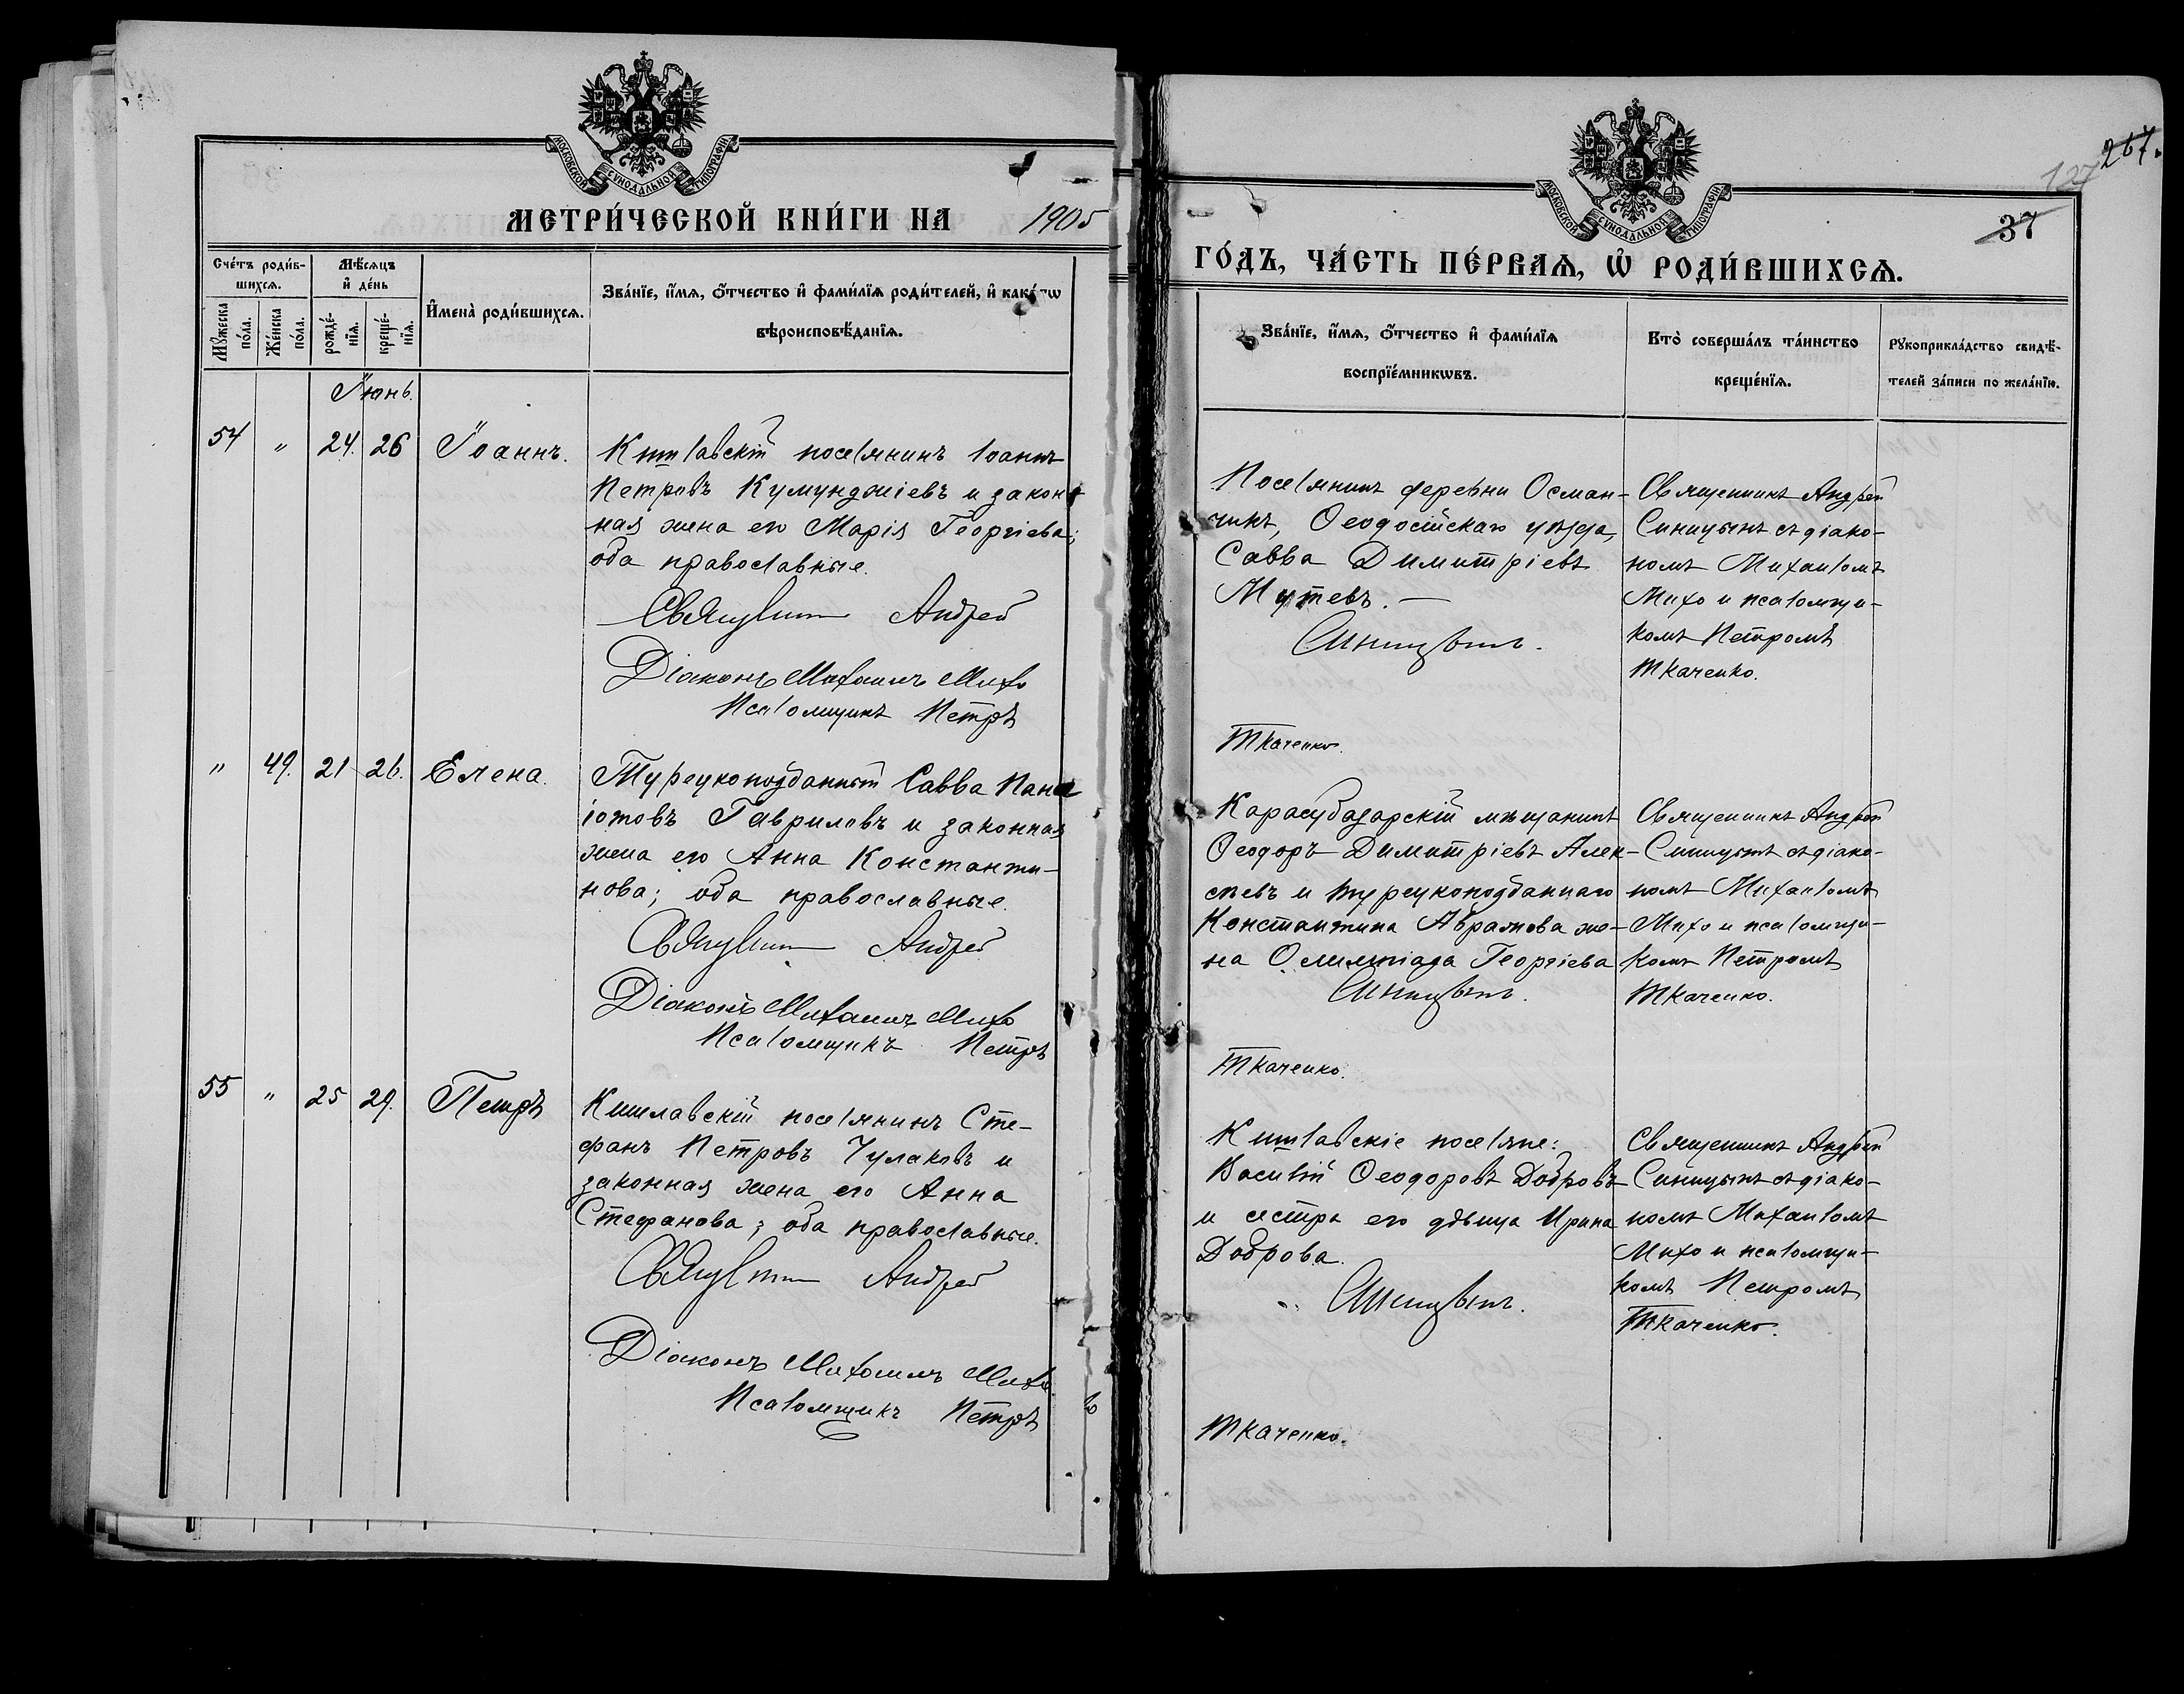 МОСКОВСКОЙ СѴНОДАЛЬНОЙ ТИПОГРАФІИ
МЕТРИ́ЧЕСКОЙ КНИ́ГИ НА 1905
Сче́тъ роди́в-
шихсѧ.
Мѣ́сѧцъ
и҆ де́нь
Мꙋ́жеска
по́ла.
Же́нска
по́ла.
рожде́-
нїѧ.
креще́-
нїѧ.
И҆мена̀ роди́вшихсѧ.
Зва́нїе, и҆́мѧ, ѻ҆́тчество и҆ фами́лїѧ роди́телей, и҆ како́гѡ
вѣроисповѣ́данїѧ.
Іюнь.
54 " 24. 26 Іоаннъ.
Кишлавскій поселянинъ Іоаннъ
Петровъ Кумунджіевъ и закон-
ная жена его Марія Георгіева;
оба православные.
Священникъ Андрей
Діаконъ Михаилъ Михо
Псаломщикъ Петръ
" 49. 21 26. Елена.
Турецкоподданный Савва Пана
іотовъ Гавриловъ и законная
жена его Анна Константи-
нова; оба православные.
Священникъ Андрей
Діаконъ Михаилъ Михо
Псаломщикъ Петръ
55 " 25 29. Петръ
Кишлавскій поселянинъ Сте-
фанъ Петровъ Чулаковъ и
законная жена его Анна
Стефанова; оба православные.
Священникъ Андрей
Діаконъ Михаилъ Михо
Псаломщикъ Петръ
МОСКОВСКОЙ СѴНОДАЛЬНОЙ ТИПОГРАФІИ
127 267.
37
ГО́ДЪ, ЧА́СТЬ ПЕ́РВАѦ, Ѡ҆ РОДИ́ВШИХСѦ.
Зва́нїе, и҆́мѧ, ѻ҆́тчество и҆ фами́лїѧ
воспрїе́мникѡвъ.
Кто̀ соверша́лъ та́инство
креще́нїѧ.
Рꙋкоприкла́дство свидѣ́-
телей за́писи по жела́нїю.
Поселянинъ деревни Осман-
чикъ, Ѳеодосійскаго уѣзда,
Савва Димитріевъ
Мутевъ.—
Синицынъ.
Ткаченко.
Священникъ Андрей
Синицынъ съ діако-
номъ Михаиломъ
Михо и псаломщи-
комъ Петромъ
Ткаченко.
Карасубазарскій мѣщанинъ
Ѳеодоръ Димитріевъ Алек-
сѣевъ и турецкоподданнаго
Константина Аврамова же-
на Олимпіада Георгіева
Синицынъ.
Ткаченко.
Священникъ Андрей
Синицынъ съ діако-
номъ Михаиломъ
Михо и псаломщи-
комъ Петромъ
Ткаченко.
Кишлавскіе поселяне:
Василій Ѳеодоровъ Добровъ
и сестра его дѣвица Ирина
Доброва.
Синицынъ.
Ткаченко.
Священникъ Андрей
Синицынъ съ діако-
номъ Михаиломъ
Михо и псаломщи-
комъ Петромъ
Ткаченко.